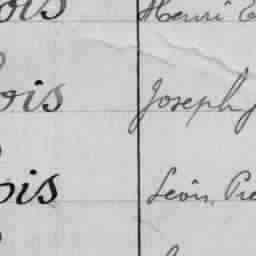 ois Henri E
ois Joseph
ois Léon, Pie